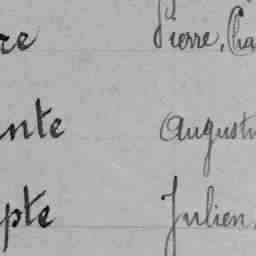 re Pierre, Cha
nte Augustu
pte Julien,